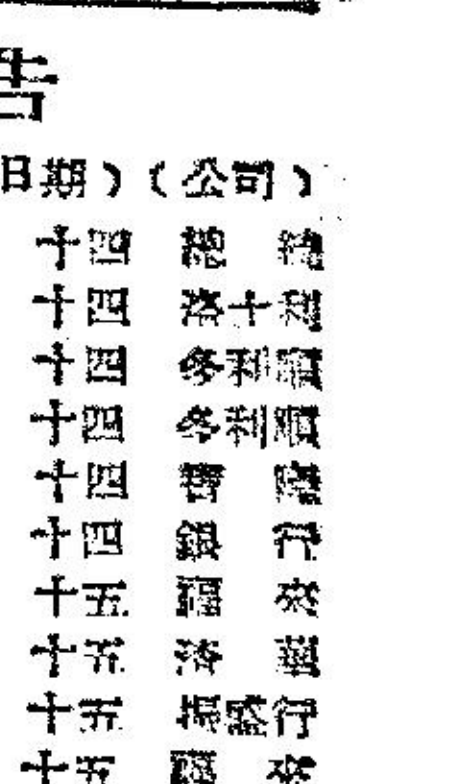 告
日期）（公司）
十四 總統
十四 洛十利
十四 多利順
十四 多利順
十四 寶隆
十四 銀行
十五 福來
十五 濟華
十五 揚盛行
十五 福來